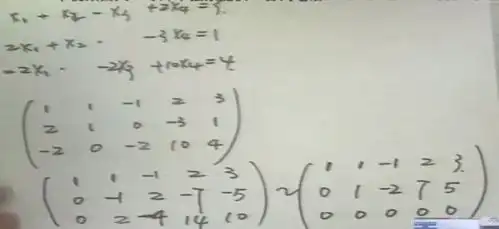 x₁ + x₂ - x₃ + 2x₄ = 3
2x₁ + x₂ - 3x₄ = 1
-2x₁ - 2x₃ + 10x₄ = 4
1 1 -1 2 3
2 1 0 -3 1
-2 0 -2 10 4
1 1 -1 2 3
0 -1 2 -7 -5
0 2 -4 14 10
~
1 1 -1 2 3
0 1 -2 7 5
0 0 0 0 0